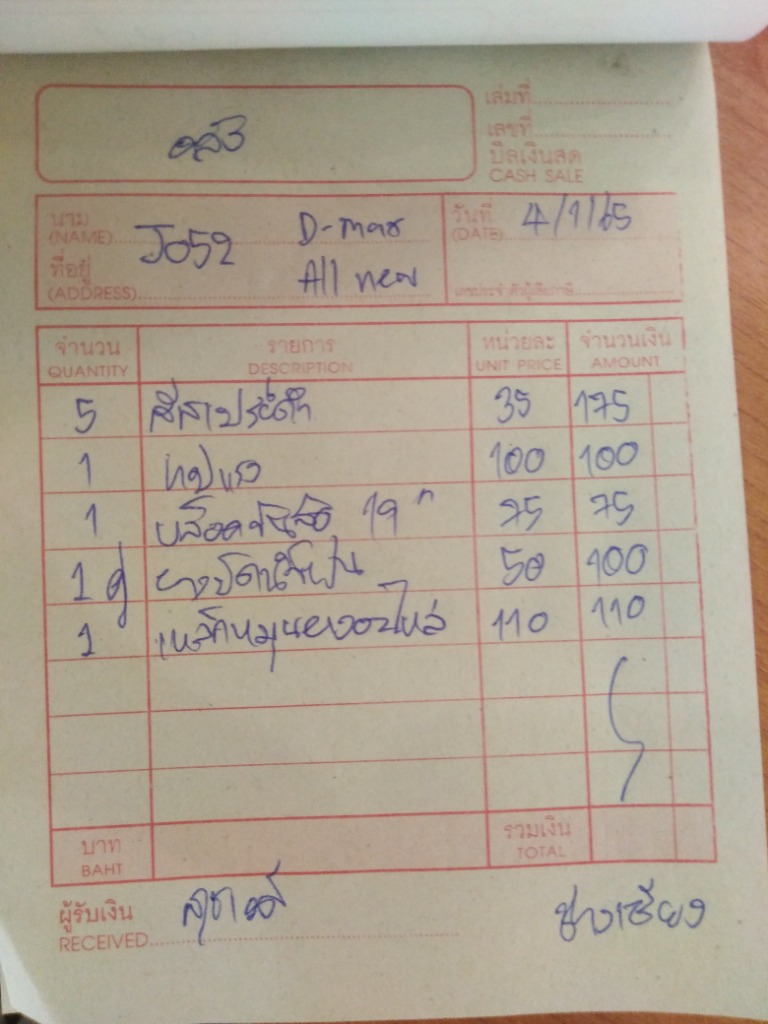 เล่มที่
เลขที่
บิลเงินสด
CASH SALE
นาม (NAME) J052 D-max
วันที่ (DATE) 4/1/65
ที่อยู่ (ADDRESS) All new
เลขประจำตัวผู้เสียภาษี
จำนวน รายการ หน่วยละ จำนวนเงิน
QUANTITY DESCRIPTION UNIT PRICE AMOUNT
5 สีสเปรย์ดำ 35 175
1 เทปแรง 100 100
1 บล็อค 19" 75 75
1 คู่ ยางปัดน้ำฝน 50 100
1 110 110
บาท รวมเงิน
BAHT TOTAL
ผู้รับเงิน
RECEIVED ช่างเชียง